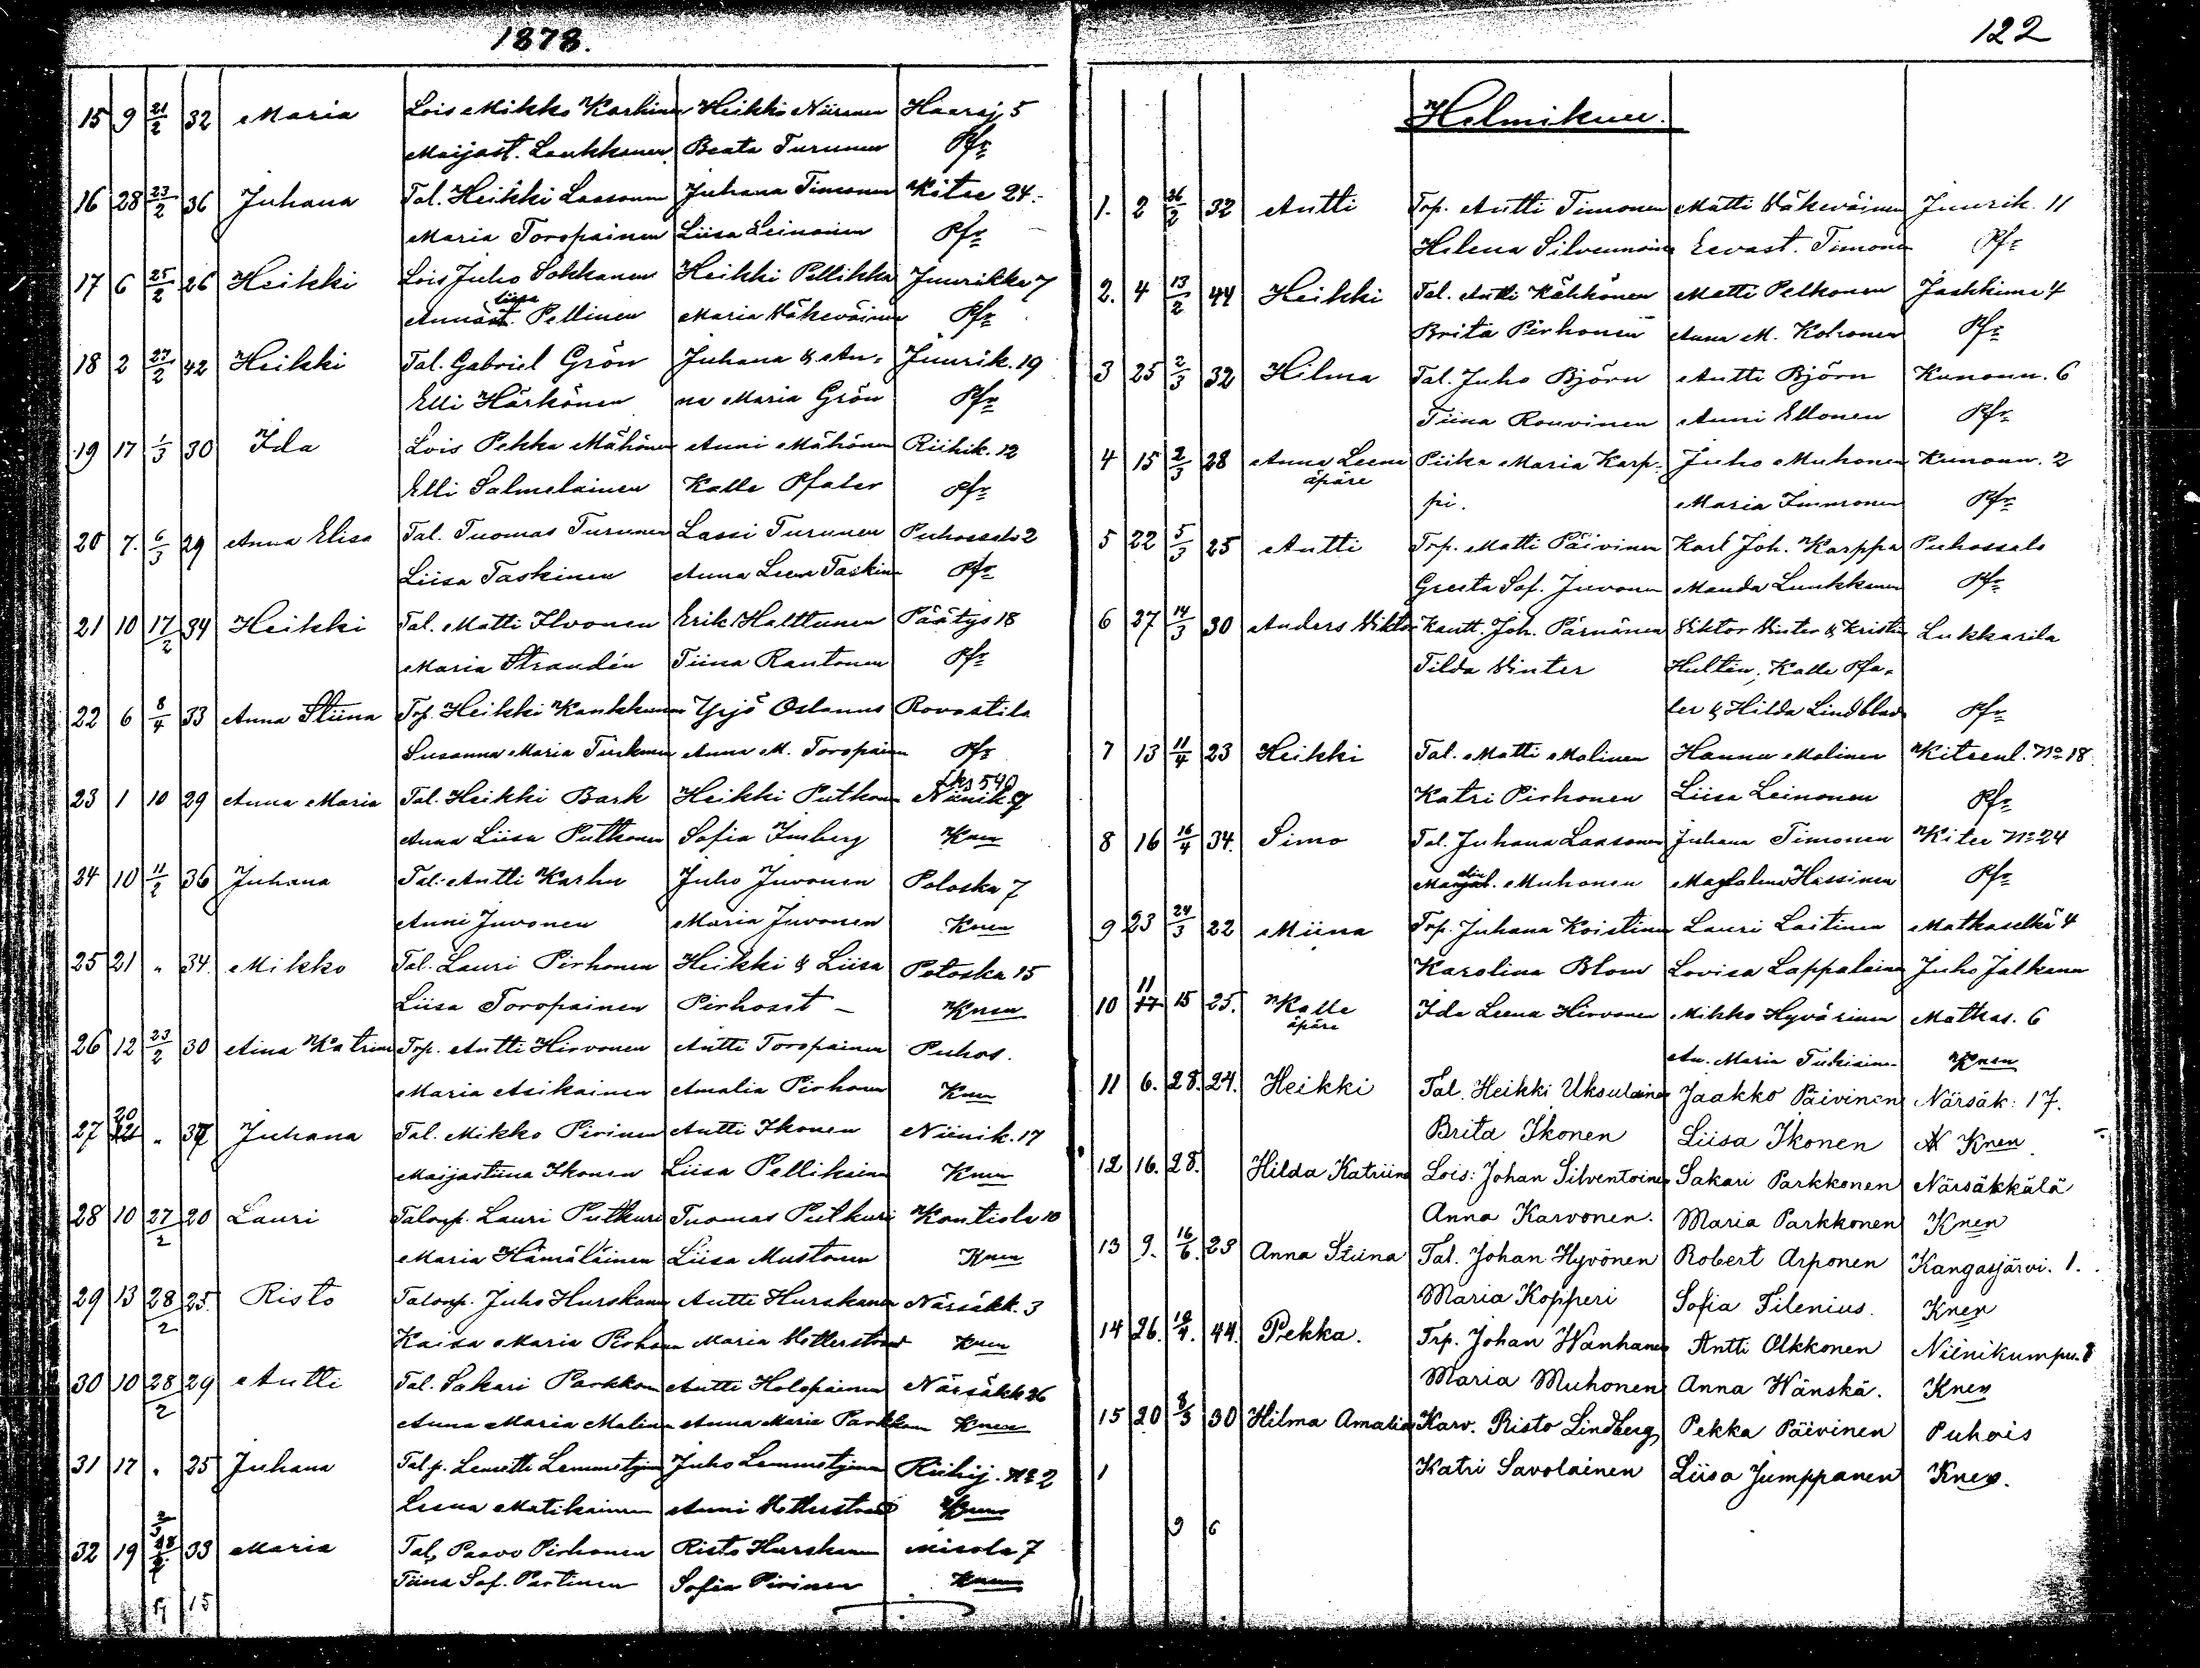 1878.
15 9 21/2 32 Maria Lois Mikko Karhinen Heikki Niiranen Haaraj. 5
Maijast. Laukkanen Beata Turunen Pfr
16 28 23/2 36 Juhana Tal. Heikki Laasonen Juhana Timonen Kitee 24.
Maria Toropainen Liisa Leinonen Pfr
17 6 25/2 26 Heikki Lois Juho Sokkanen Heikki Pellikka Juurikka 7
Annastiina Pellinen Maria Väkeväinen Pfr
18 2 27/2 42 Heikki Tal. Gabriel Grön Juhana & An- Juurik. 19
Elli Härkönen na Maria Grön Pfr
19 17 1/3 30 Ida Lois Pekka Mähönen Anni Mähönen Riihik. 12
Elli Salmelainen Kalle Pfaler Pfr
20 7. 6/3 29 Anna Elisa Tal. Tuomas Turunen Lassi Turunen Puhossalo 2
Liisa Taskinen Anna Leena Taskinen Pfr
21 10 17/2 34 Heikki Tal. Matti Ilvonen Erik Halttunen Päätys 18
Maria Strandén Tiina Rautonen Pfr
22 6 8/4 33 Anna Stiina Trp. Heikki Kaukkunen Yrjö Oslanus Rovastila
Susanna Maria Turkunen Anna M. Toropainen Pfr
23 1 10 29 Anna Maria Tal. Heikki Bark Heikki Putkonen Niinik 9
Anna Liisa Putkonen Sofia Imberg Knen
24 10 11/2 36 Juhana Tal. Antti Karhu Juho Juvonen Potoska 7
Anni Juvonen Maria Juvonen Knen
25 21 " 34. Mikko Tal. Lauri Pirhonen Heikki & Liisa Potoska 15
Liisa Toropainen Pirhoset – Knen
26 12 23/2 30 Aina Katrina Trp. Antti Hirvonen Antti Toropainen Puhos.
Maria Asikainen Amalia Pirhonen Knen
27 20 " 37 Juhana Tal. Mikko Pirinen Antti Ikonen Niinik. 17
Maijastiina Ikonen Liisa Pellikainen Knen
28 10 27/2 20 Lauri Talonp. Lauri Putkuri Tuomas Putkuri Kontiola 10
Maria Hämäläinen Liisa Mustonen Knen
29 13 28/2 25. Risto Talonp. Juho Hurskanen Antti Hurskanen Närsäkk. 3
Kaisa Maria Pirhonen Maria Hetterstrand Knen
30 10 28/2 29 Antti Tal. Sakari Parkkonen Antti Holopainen Närsäkk 26
Anna Maria Malinen Anna Maria Parkkonen Knen
31 17 " 25 Juhana Talp. Lemetti Lemmetyinen Juho Lemmetyinen Riihij. No 2
Leena Matikainen Anni Hetterstrand Knen
32 19 33 Maria Tal. Paavo Pirhonen Risto Hurskanen Misola 7
Tiina Sof. Partinen Sofia Pirinen Knen
17 15
122
Helmikuu.
1. 2 26/2 32 Antti Trp. Antti Timonen Matti Väkeväinen Juurik. 11
Helena Silvennoinen Eevast. Timonen Pfr
2. 4 13/2 44 Heikki Tal. Antti Kähkönen Matti Pelkonen Jashkima 4
Brita Pirhonen Anna M. Kohonen Pfr
3 25 2/3 32 Hilma Tal. Juho Björn Antti Björn Kunonn. 6
Tiina Rouvinen Anni Ellonen Pfr
4 15 2/3 28 Anna Leena Piika Maria Karp- Juho Muhonen Kunonn. 2
äpäre pi. Maria Immonen Pfr
5 22 5/3 25 Antti Trp. Matti Päivinen Karl Joh. Karppa Puhossalo
Greeta Sof. Juvonen Manda Luukkanen Pfr
6 27 14/3 30 Anders Viktor Kantt. Joh. Pärnänen Viktor Vinter & Kristin Lukkarila
Tilda Vinter Hultin, Kalle Pfa-
ler & Hilda Lindblad Pfr
7 13 11/4 23 Heikki Tal. Matti Malinen Hannu Malinen Kiteenl. No 18
Katri Pirhonen Liisa Leinonen Pfr
8 16 16/4 34. Simo Tal. Juhana Laasonen Juhana Timonen Kitee No 24
Muhonen Magdalena Hassinen Pfr
9 23 24/3 22 Miina Trp. Juhana Koistinen Lauri Laitinen Matkaselkä 4
Karolina Blom Lovisa Lappalainen Juho Jalkanen
10 11 15 25. Kalle Ida Leena Hirvonen Mikko Hyvärinen Matkas. 6
äpäre An. Maria Tukiainen Knen
11 6. 28. 24. Heikki Tal. Heikki Uksulainen Jaakko Päivinen Närsäk: 17.
Brita Ikonen Liisa Ikonen Knen.
12 16. 28. Hilda Katriina Lois: Johan Silventoinen Sakari Parkkonen Närsäkkälä
Anna Karvonen. Maria Parkkonen Knen
13 9. 16/6. 23 Anna Stiina Tal. Johan Hyvönen Robert Arponen Kangasjärvi. 1.
Maria Kopperi Sofia Silenius. Knen
14 26. 19/4. 44. Pekka. Trp. Johan Wanhanen Antti Olkkonen Niinikumpu. 8
Maria Muhonen Anna Wänskä. Knen
15 20 8/3 30 Hilma Amalia Karv. Risto Lindberg Pekka Päivinen Puhois
1 Katri Savolainen Liisa Jumppanen Knen.
9 6